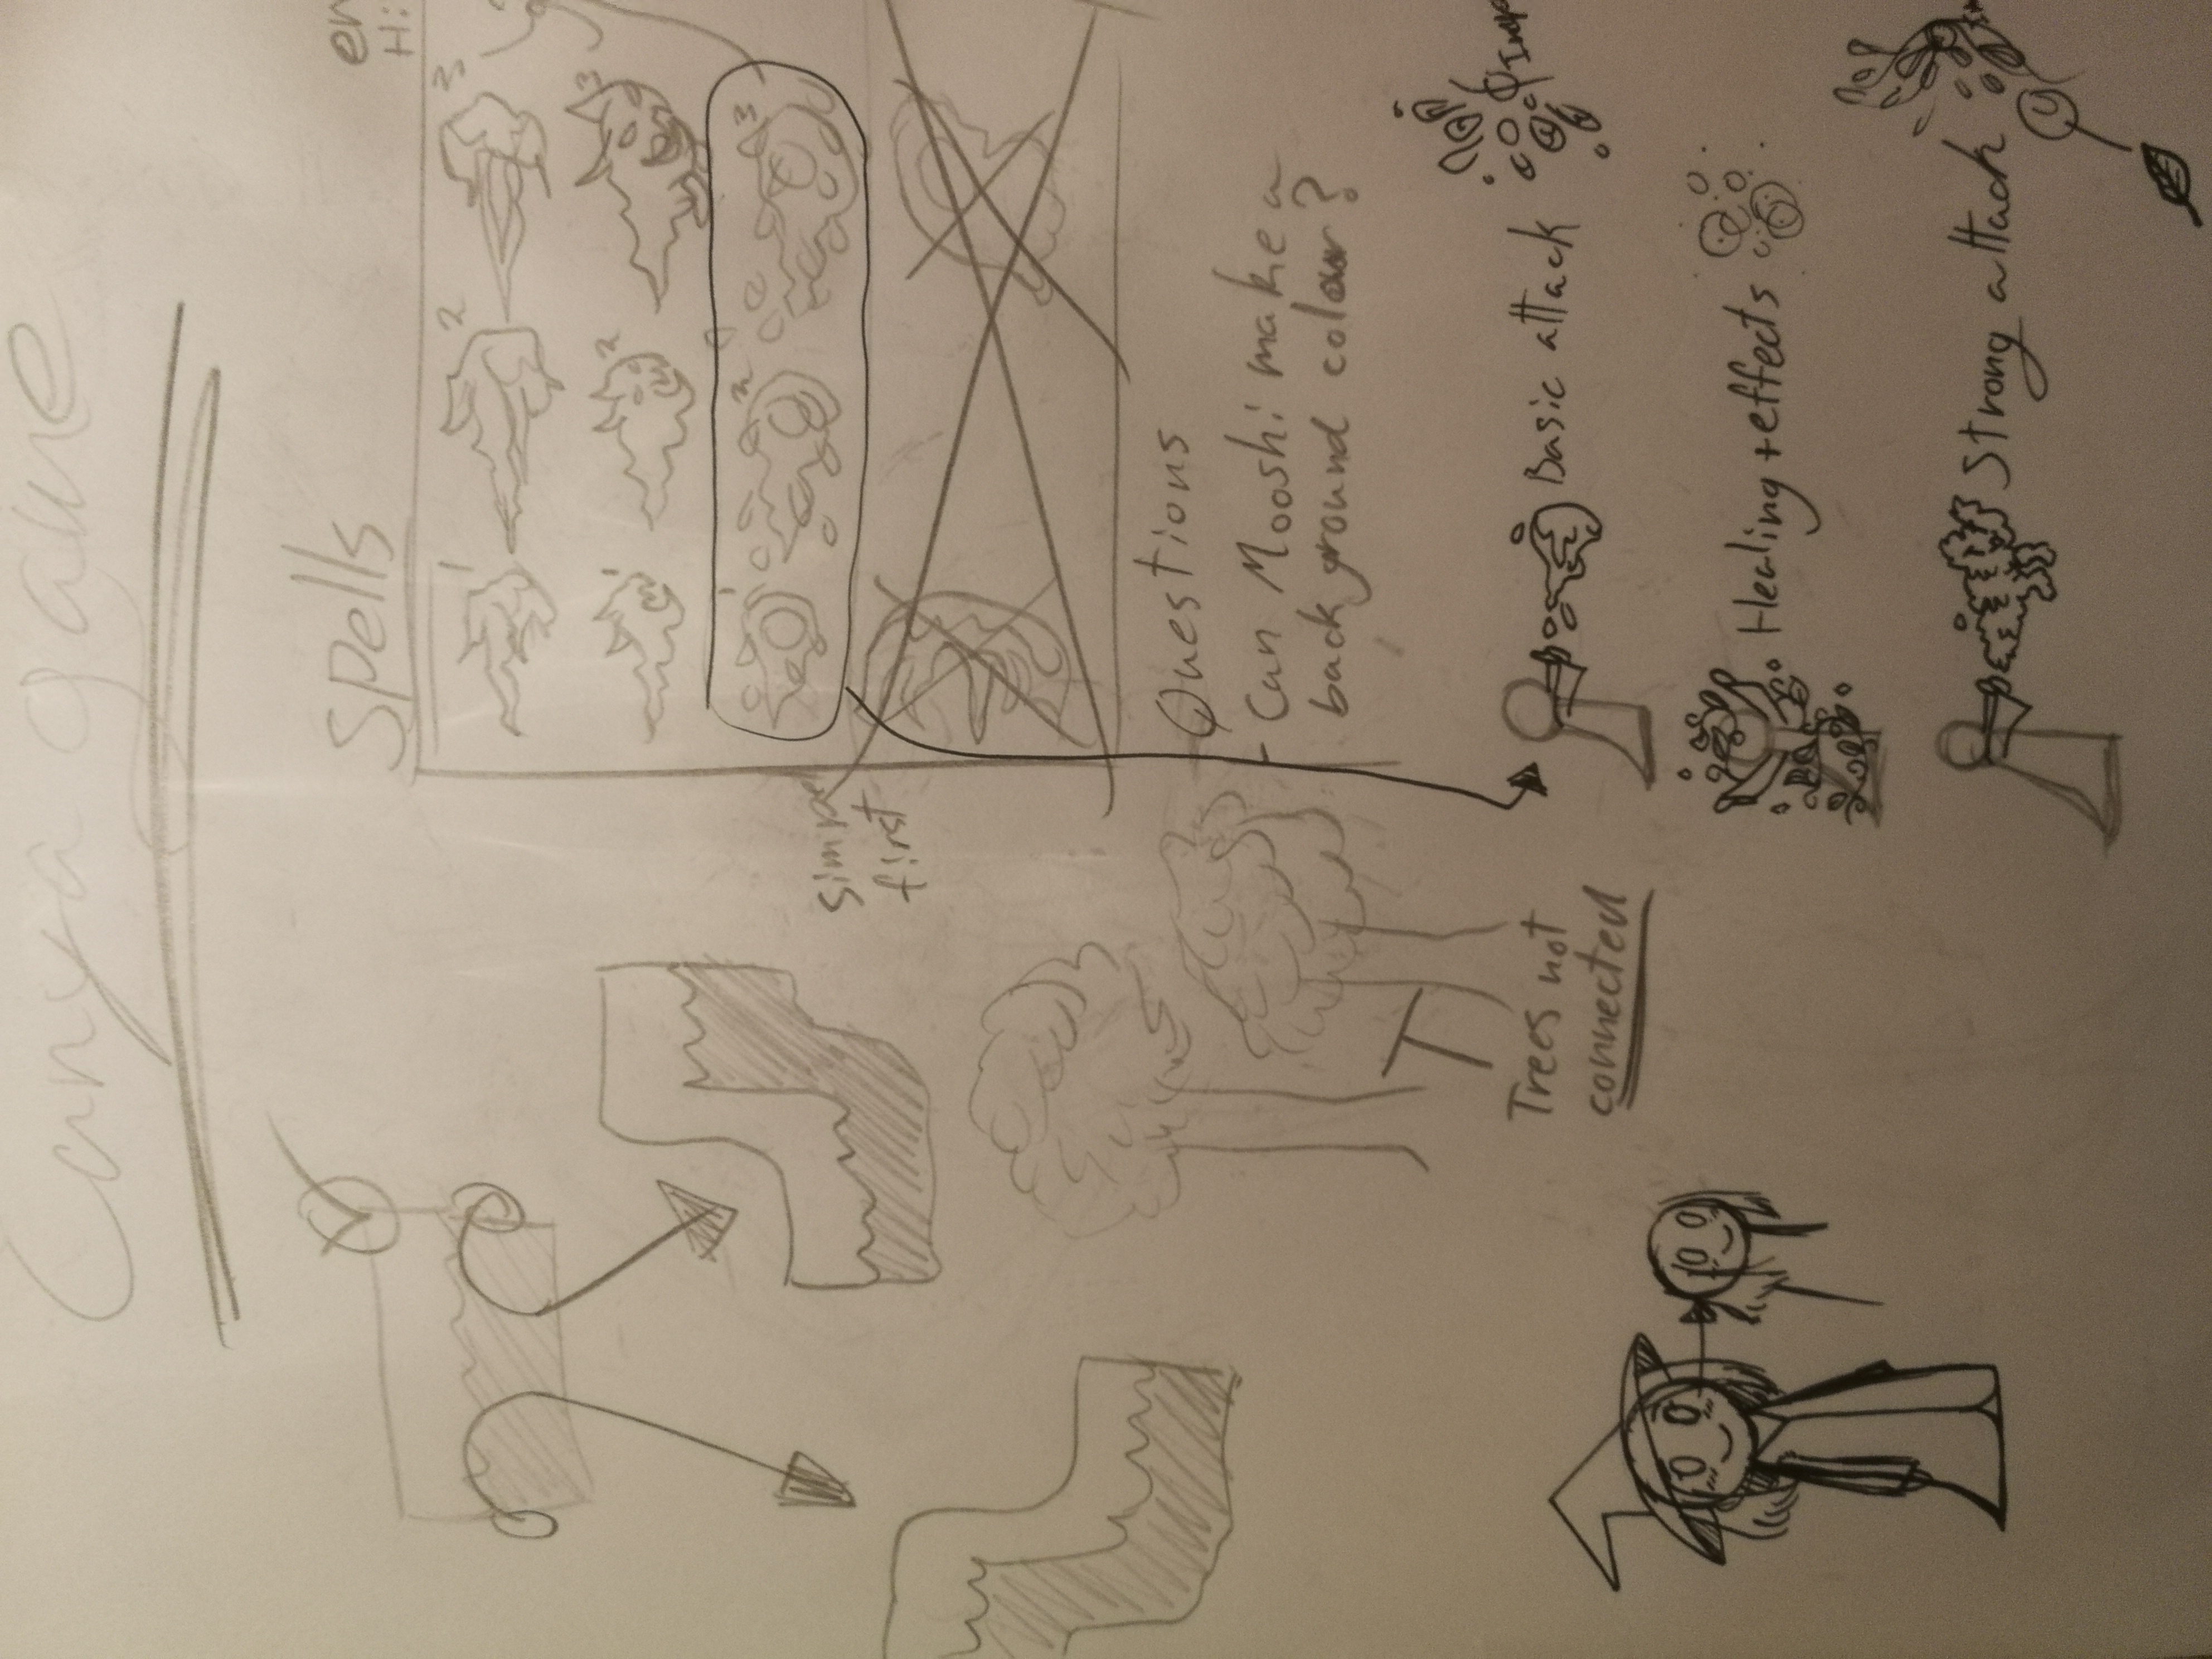 Canya game
Spells
1 2 3
1 2 3
1 2 3
first
Questions
- Can Mooshi make a
background colour?
Trees not
connected
Basic attack
Healing + effects
Strong attack